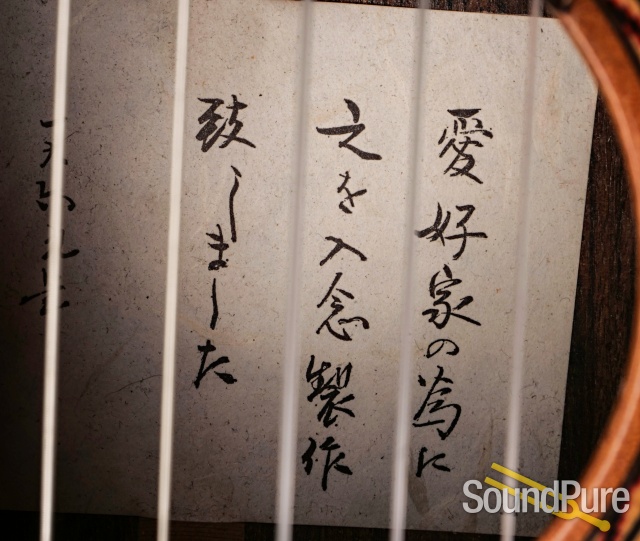 愛好家の為に
之を入念製作
致しました
SoundPure